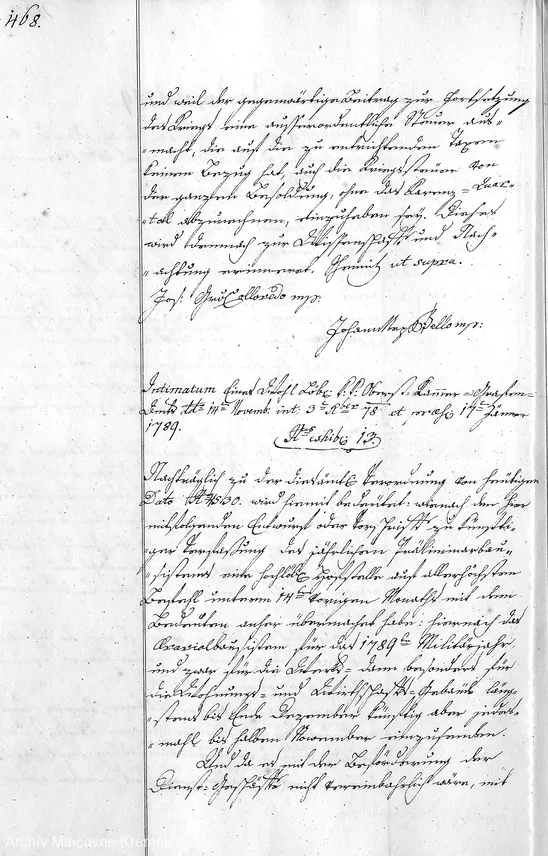 468.
und weil der gegenwärtige Beitrag zur Fortsetzung
des Kriegs eine ausserordentliche Steuer aus-
-macht, die auf die zu entrichtenden Taxen
keinen Bezug hat, auch die Kriegssteuer von
der ganzen Besoldung, ohne das Karenz-Quar-
-tal abzurechnen, einzuheben sey. Dieses
wird demnach zur Wissenschaft und Nach-
-achtung erinnert. Schemnitz ut supra.
Jos: Gr: Colloredo mp.
Johann Nep: Bello mp:
Intimatum Eines Wohl Löbl: k: k: Oberst-Kammer-Grafen-
Amts dto 14ten Novemb. int. 3ten Xber 78 et præs: 14ten Jänner
1789.
Nro exhib: 13
Nachträglich zu der diesämtl: Verordnung von heutigen
Dato wird hiemit bedeutet: wienach den hier
mitfolgenden Entwurf oder Vorschrift zu künfti-
-ger Verfassung des jährlichen Präliminarbau-
-sistems eine hochlöbl: Hofstelle auf allerhöchsten
Befehl unterm 14ten vorigen Monaths mit dem
Bedeuten anher übermacht habe: hiernach das
Aerarialbausistem für das 1789te Militärjahr
und zwar für die Werks- dann besonders für
die Wohnungs- und Wirthschafts-Gebäude läng-
-stens bis Ende Dezember künftig aber jedes-
-mahl bis halben November einzusenden.
Und da es mit der Beförderung der
Dienst-Geschäfte nicht vereinbahrlich wäre, mit
Archiv Mincovne Kremnica